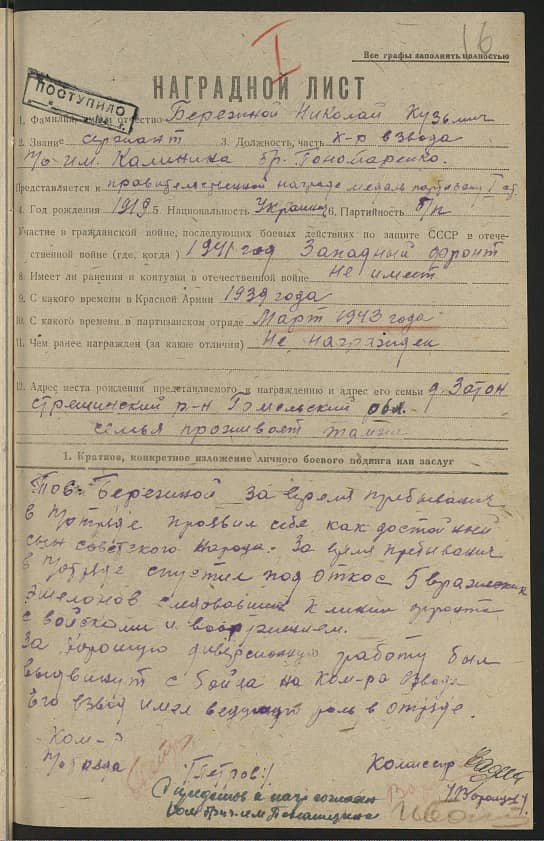 16
I
Все графы заполнять полностью
НАГРАДНОЙ ЛИСТ
ПОСТУПИЛО
1. Фамилия, имя и отчество Березиной Николай Кузьмич
2. Звание сержант 3. Должность, часть к-р взвода
п/о им. Калинина бр. Пономаренко.
Представляется к правительственной награде медаль партизану I ст.
4. Год рождения 1919 5. Национальность Украинец 6. Партийность б/п
Участие в гражданской войне, последующих боевых действиях по защите СССР в отече-
ственной войне (где, когда) 1941 год Западный фронт
8. Имеет ли ранения и контузии в отечественной войне не имеет
9. С какого времени в Красной Армии 1939 года
10. С какого времени в партизанском отряде Март 1943 года
11. Чем ранее награжден (за какие отличия) Не награжден
12. Адрес места рождения представляемого к награждению и адрес его семьи д. Затон
стрешинский р-н Гомельский обл.
семья проживает там же
1. Краткое, конкретное изложение личного боевого подвига или заслуг
Тов. Березиной за время пребывания
в п/отряде проявил себя как достойный
сын советского народа. За время пребывания
в п/отряде спустил под откос 5 вражеских
эшелонов следовавших к линии фронта
с войсками и вооружением.
За хорошую диверсионную работу был
выдвинут с бойца на ком-ра взвода
Его взвод имел ведущий роль в отряде.
Ком-р
п/отряда /Петров/
Комиссар
/Воронцов/